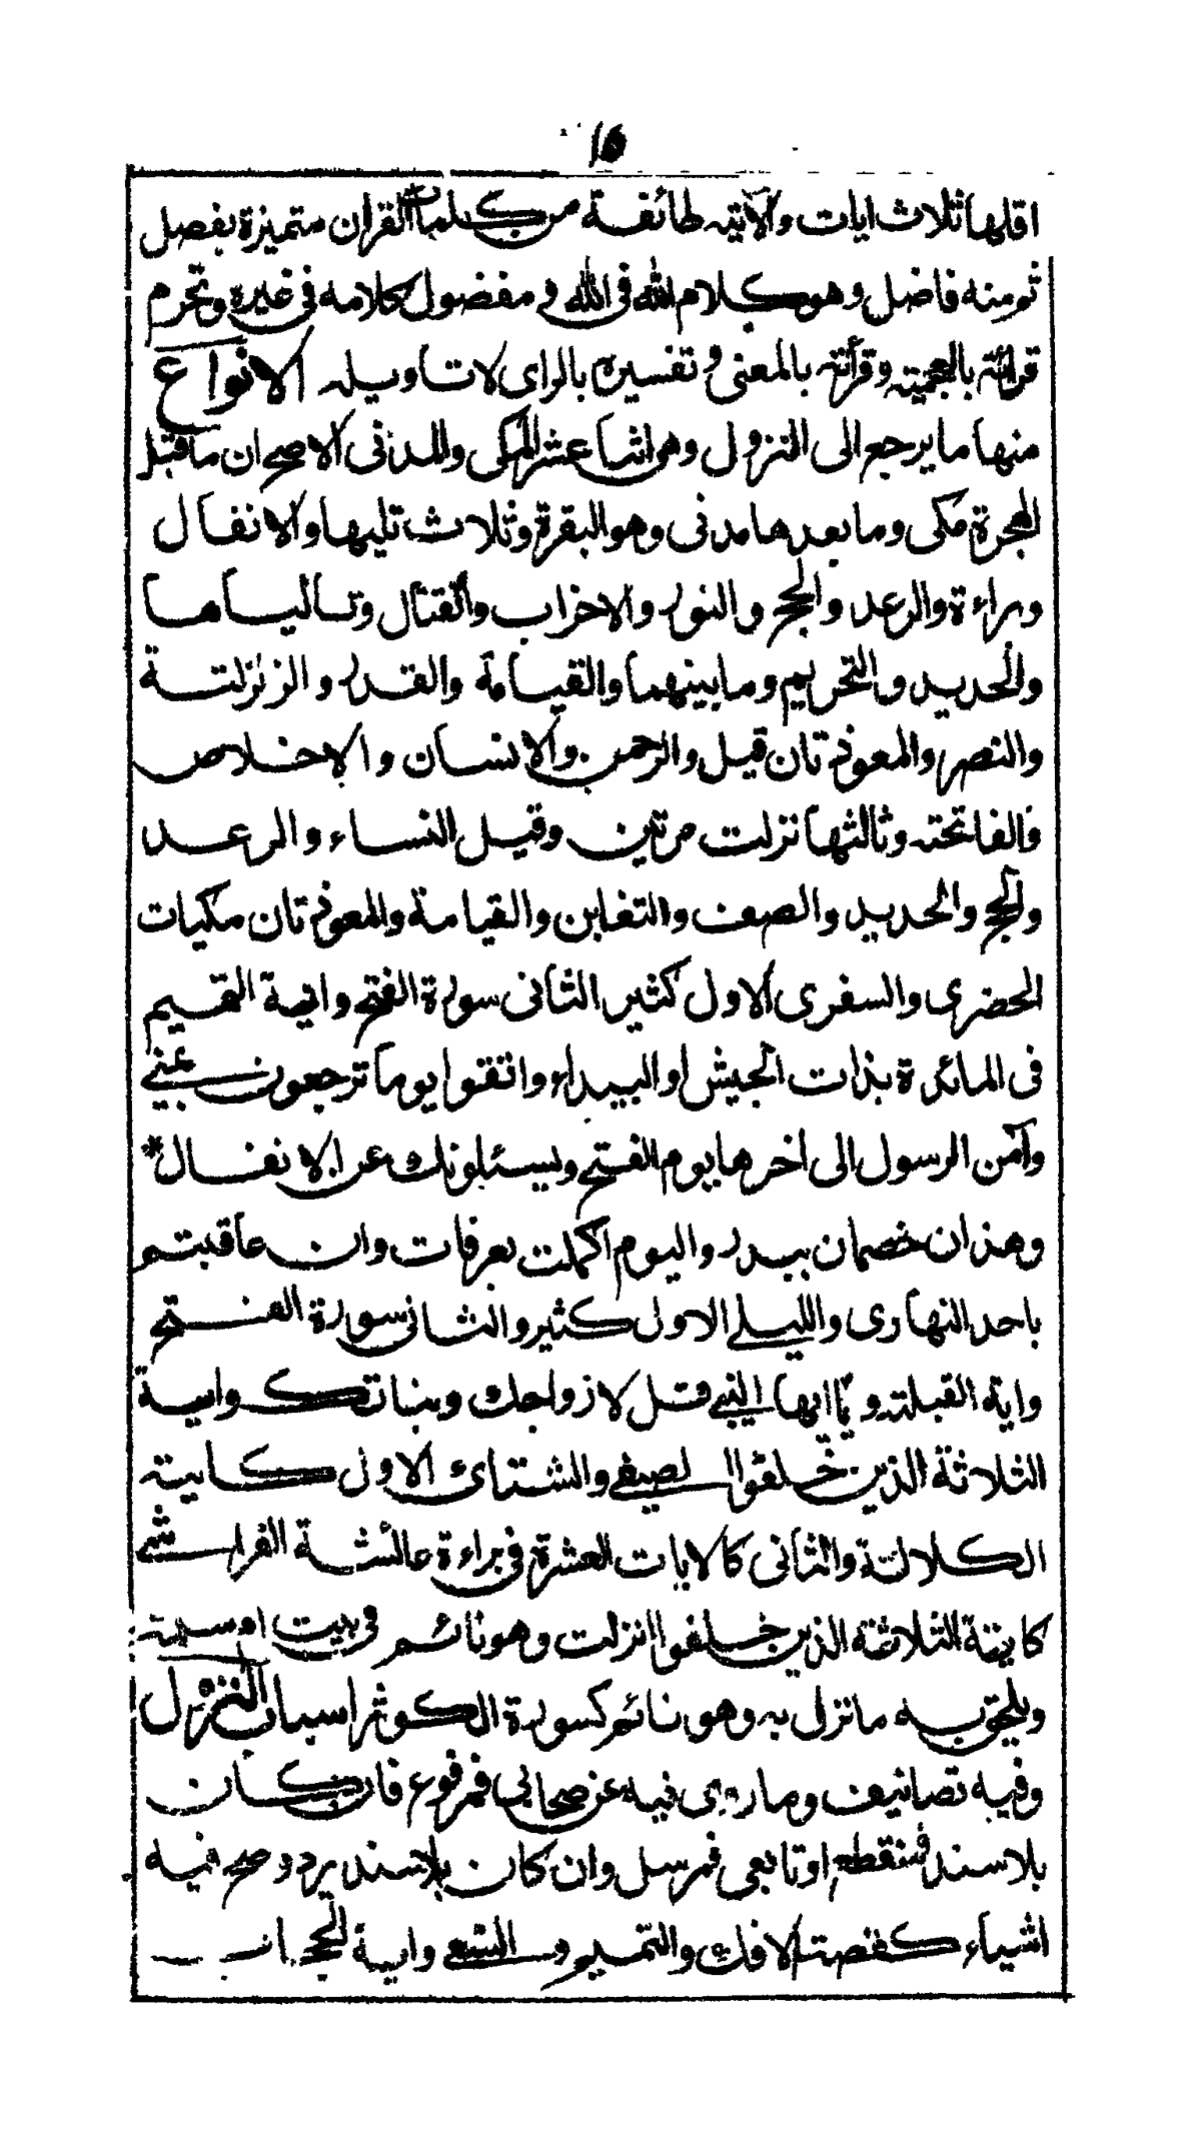 ١٥
اقلها ثلاث ايات والآية طائفة من كلمات القران متميزة بفصل
ثم منه فاضل وهو كلام الله في الله ومفضول كلامه في غيره وتحرم
قرائته بالعجمية وقرأته بالمعنى وتفسيره بالراى لا تاويله الانواع
منها ما يرجع الى النزول وهي اثنا عشر المكى والمدنى الاصح ان ما قبل
الهجرة مكى وما بعدها مدنى وهو البقرة وثلاث تليها والانفال
وبراءة والرعد والحج والنور والاحزاب والقتال وتالياها
والحديد والتحريم وما بينهما والقيامة والقدر والزلزلة
والنصر والمعوذتان قيل والرحمن والانسان والاخلاص
والفاتحة وثالثها نزلت مرتين وقيل النساء والرعد
والحج والحديد والصف والتغابن والقيامة والمعوذتان مكيات
الحضرى والسفرى الاول كثير الثانى سورة الفتح واية التيمم
فى المائدة بذات الجيش او البيداء واتقوا يوما ترجعون بمنى
وآمن الرسول الى اخرها يوم الفتح ويسئلونك عن الانفال *
وهذان خصمان ببدر واليوم اكملت بعرفات وان عاقبتم
باحد النهارى والليلي الاول كثير والثانى سورة الفتح
واية القبلة ويا ايها النبي قل لازواجك وبناتك واية
الثلاثة الذين خلفوا الصيفي والشتائ الاول كاية
الكلالة والثانى كالايات العشرة في براءة عائشة الفراشي
كاية الثلاثة الذين خلفوا نزلت وهو نائم في بيت ام سلمة
ويلحق به ما نزل به وهو نائم كسورة الكوثر اسباب النزول
وفيه تصانيف وما روى فيه عن صحابي فمرفوع فان كان
بلا سند فمنقطع او تابعى فمرسل وان كان بلا سند يرد وصح فيه
اشياء كقصة الافك والتيمم والسعي واية الحجاب